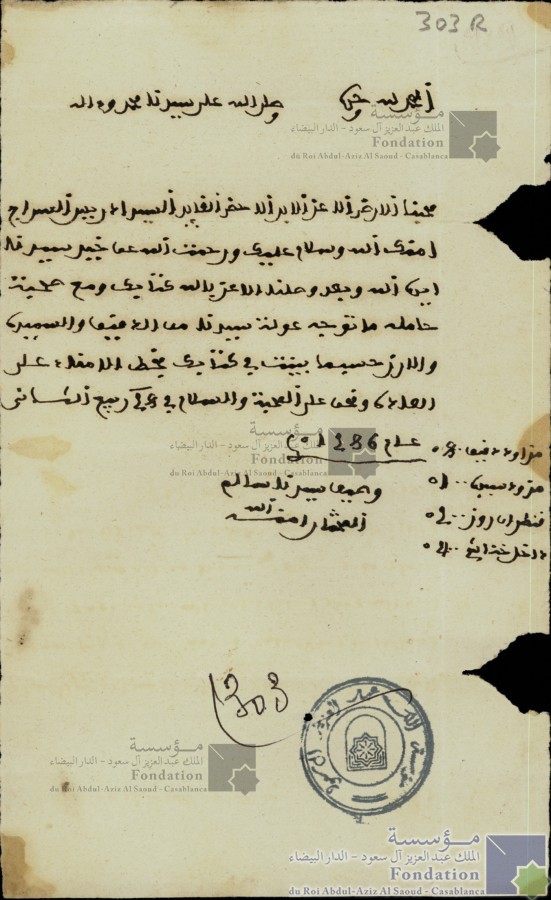 303 R
الحمد لله وحده
وصلى الله على سيدنا محمد وءاله
محبنا الارضى الاعز الابر الاحظى القايد السيد ادريس السراج
امنك الله وسلام عليك ورحمت الله عن خير سيدنا
ايده الله وبعد وصلنا الاعز بالله كتابك ومع صحبت
حامله ما توجه عولت سيدنا من الدقيق والسميد
والارز حسبما بينت في كتابك بخط الامناء على
العادة ونحن على المحبة والسلام في ربيع الثاني
عام 1286
ووصيف سيدنا سالم
امنه الله
دقيق
سميد
روز
303
مؤسسة
الملك عبد العزيز آل سعود - الدار البيضاء
Fondation
du Roi Abdul-Aziz Al Saoud - Casablanca
مؤسسة
الملك عبد العزيز آل سعود - الدار البيضاء
Fondation
du Roi Abdul-Aziz Al Saoud - Casablanca
مؤسسة
الملك عبد العزيز آل سعود - الدار البيضاء
Fondation
du Roi Abdul-Aziz Al Saoud - Casablanca
مؤسسة
الملك عبد العزيز آل سعود - الدار البيضاء
Fondation
du Roi Abdul-Aziz Al Saoud - Casablanca